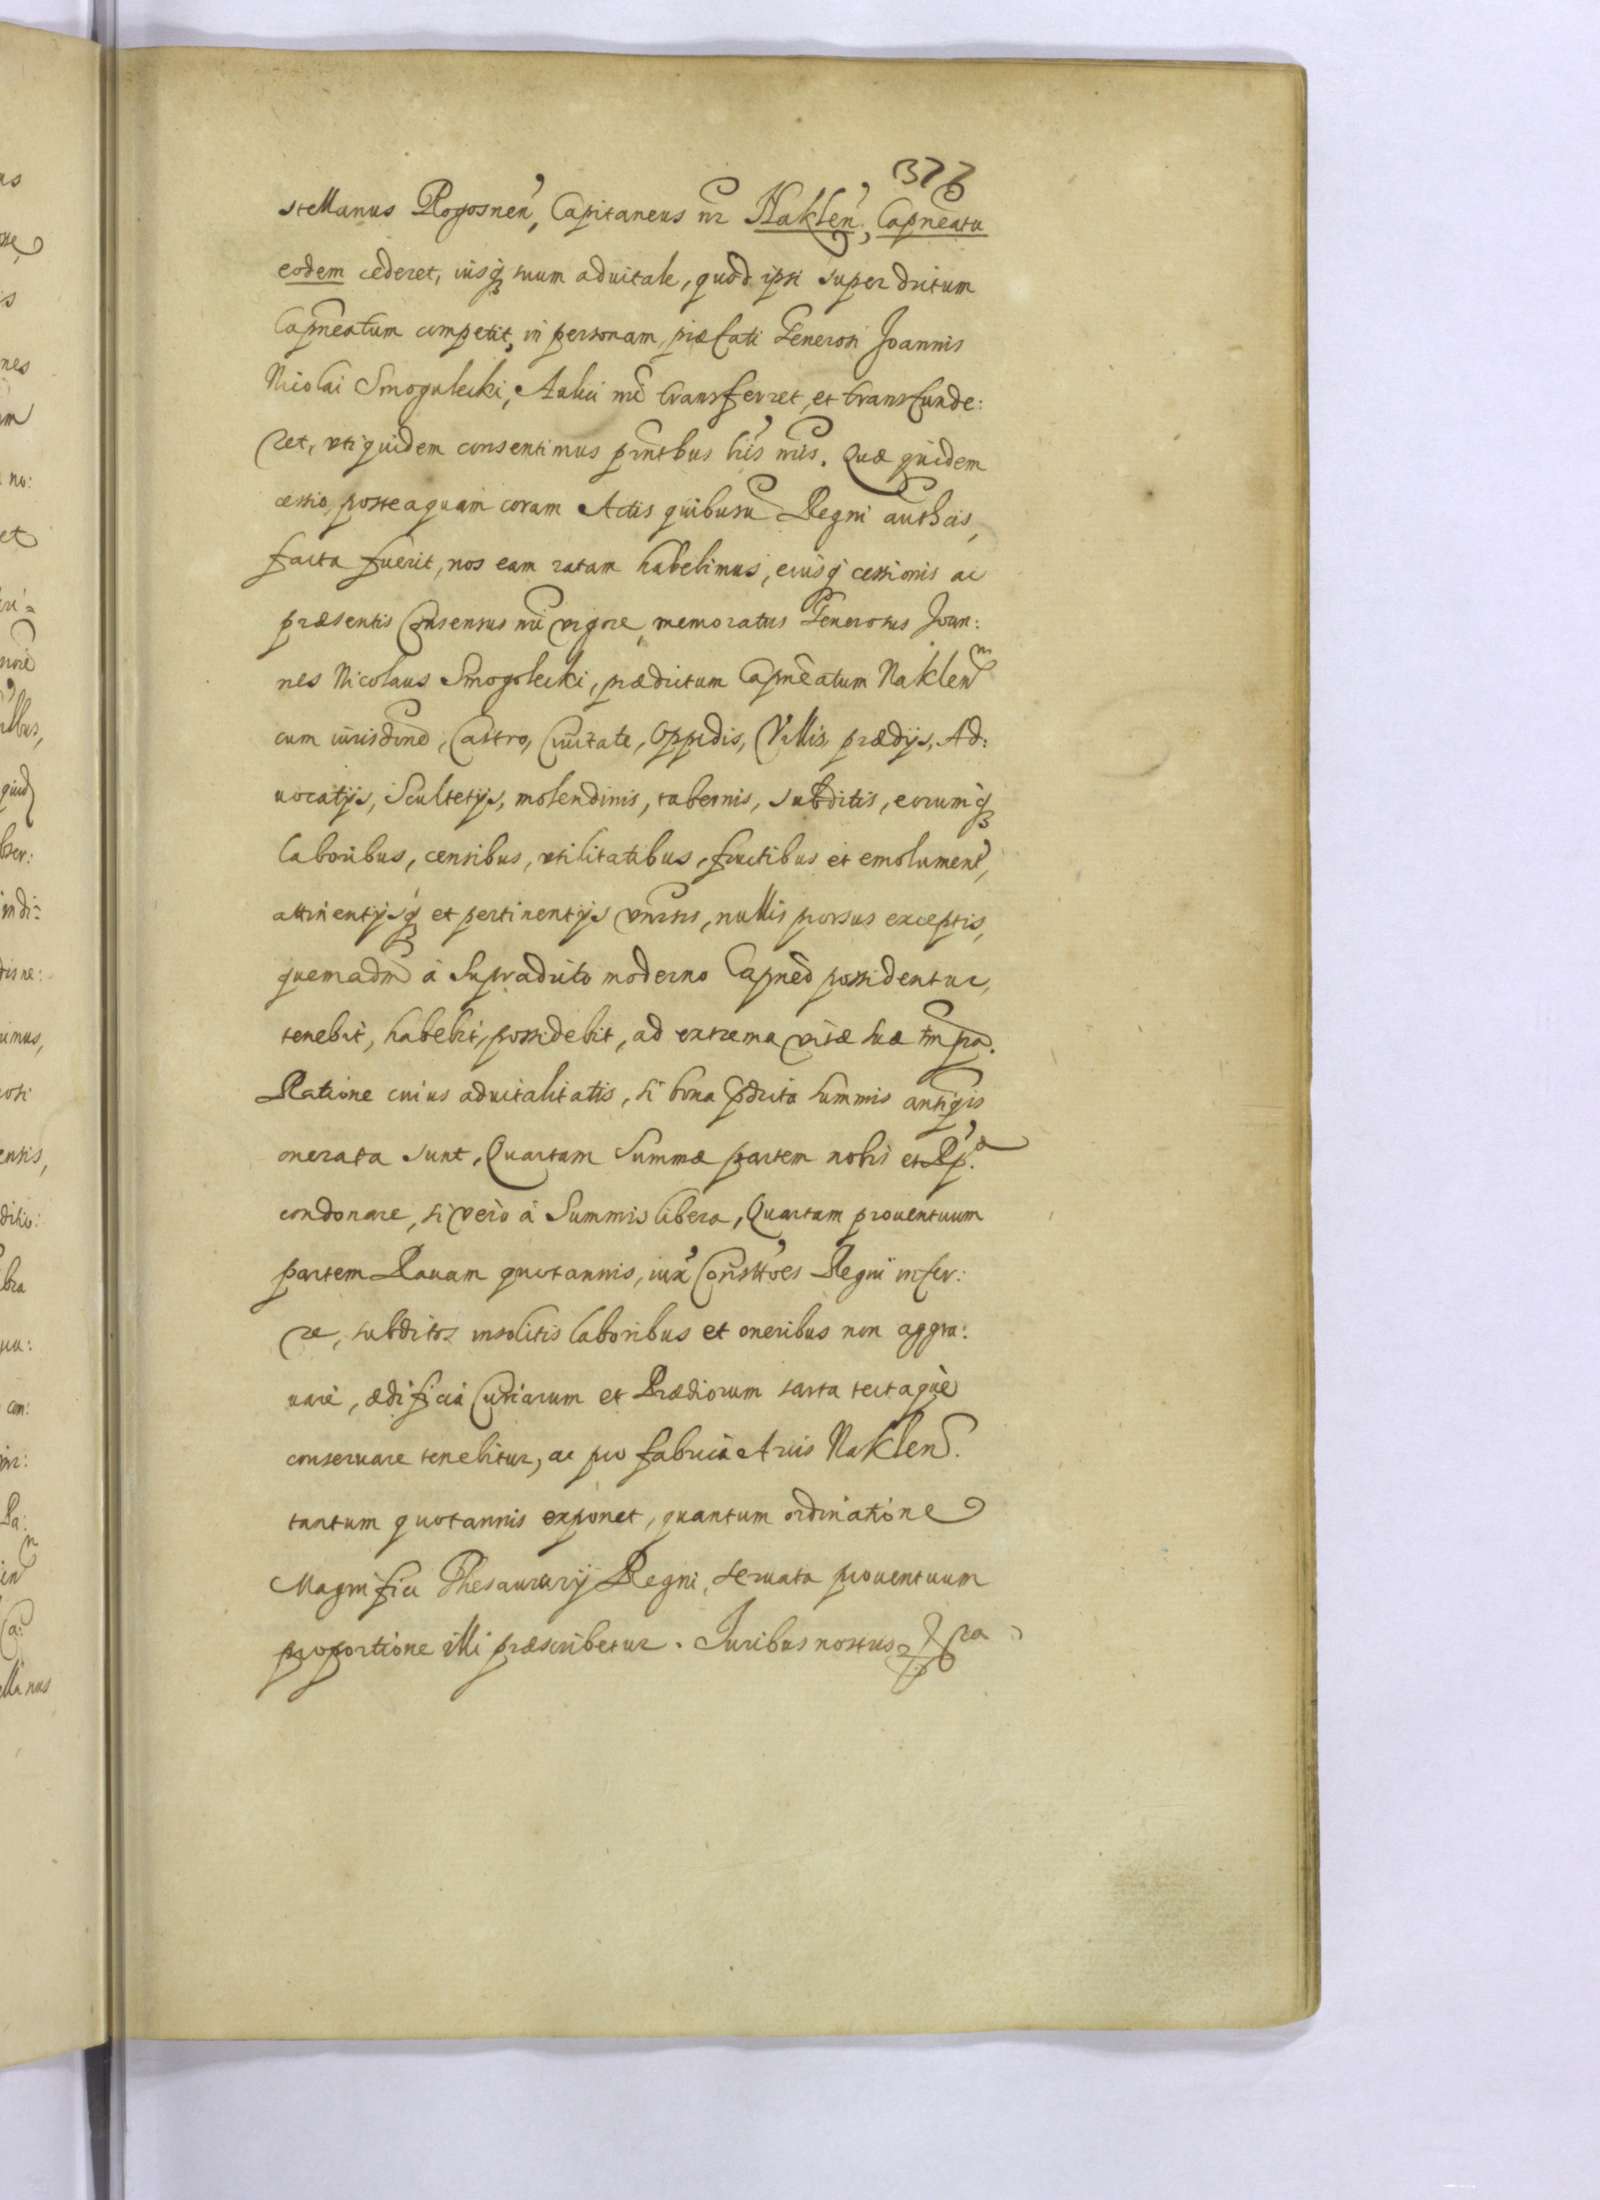 377
stellanus Rogosnen, Capitaneus nr Naklen, Capneatu
eodem cederet, iusq suum aduitale, quod ipsi super dictum
Capneatum competit, in personam præfati Generosi Joannis
Nicolai Smogulecki, Aulici nri transferret, et transfunde:
ret, uti quidem consentimus pntibus lris nris. Quæ quidem
cessio, posteaquam coram Actis quibusuis Regni authcis,
facta fuerit, nos eam ratam habebimus, eiusq cessionis ac
præsentis Consensus nri vigore, memoratus Generosus Joan:
nes Nicolaus Smogolecki, prædictum Capneatum Naklen
cum iurisdine, Castro, Ciuitate, Oppidis, Villis prædijs, Ad:
uocatijs, Scultetijs, molendinis, tabernis, subditis, eorumq
laboribus, censibus, vtilitatibus, fructibus et emolument,
attinentijsq et pertinentijs vnrsis, nullis prorsus exceptis,
quemadm à supradicto moderno Capneo possidentur,
tenebit, habebit, possidebit, ad extrema vitæ suæ tmpra.
Ratione cuius aduitalitatis, si bona pdicta summis antiqis
onerata sunt, Quartam Summæ partem nobis et Rp.
condonare, si verò à Summis libera, Quartam prouentuum
partem Rauam quotannis, iux Consttoes Regni infer:
re, subditos insolitis laboribus et oneribus non aggra:
uare, ædificia Curiarum et Prædiorum sarta tectaque
conseruare tenebitur, ac pro fabrica Arcis Naklen.
tantum quotannis exponet, quantum ordinatione
Magnifici Thesaurarij Regni, seruata prouentuum
proportione illi præscribetur. Iuribus nostris